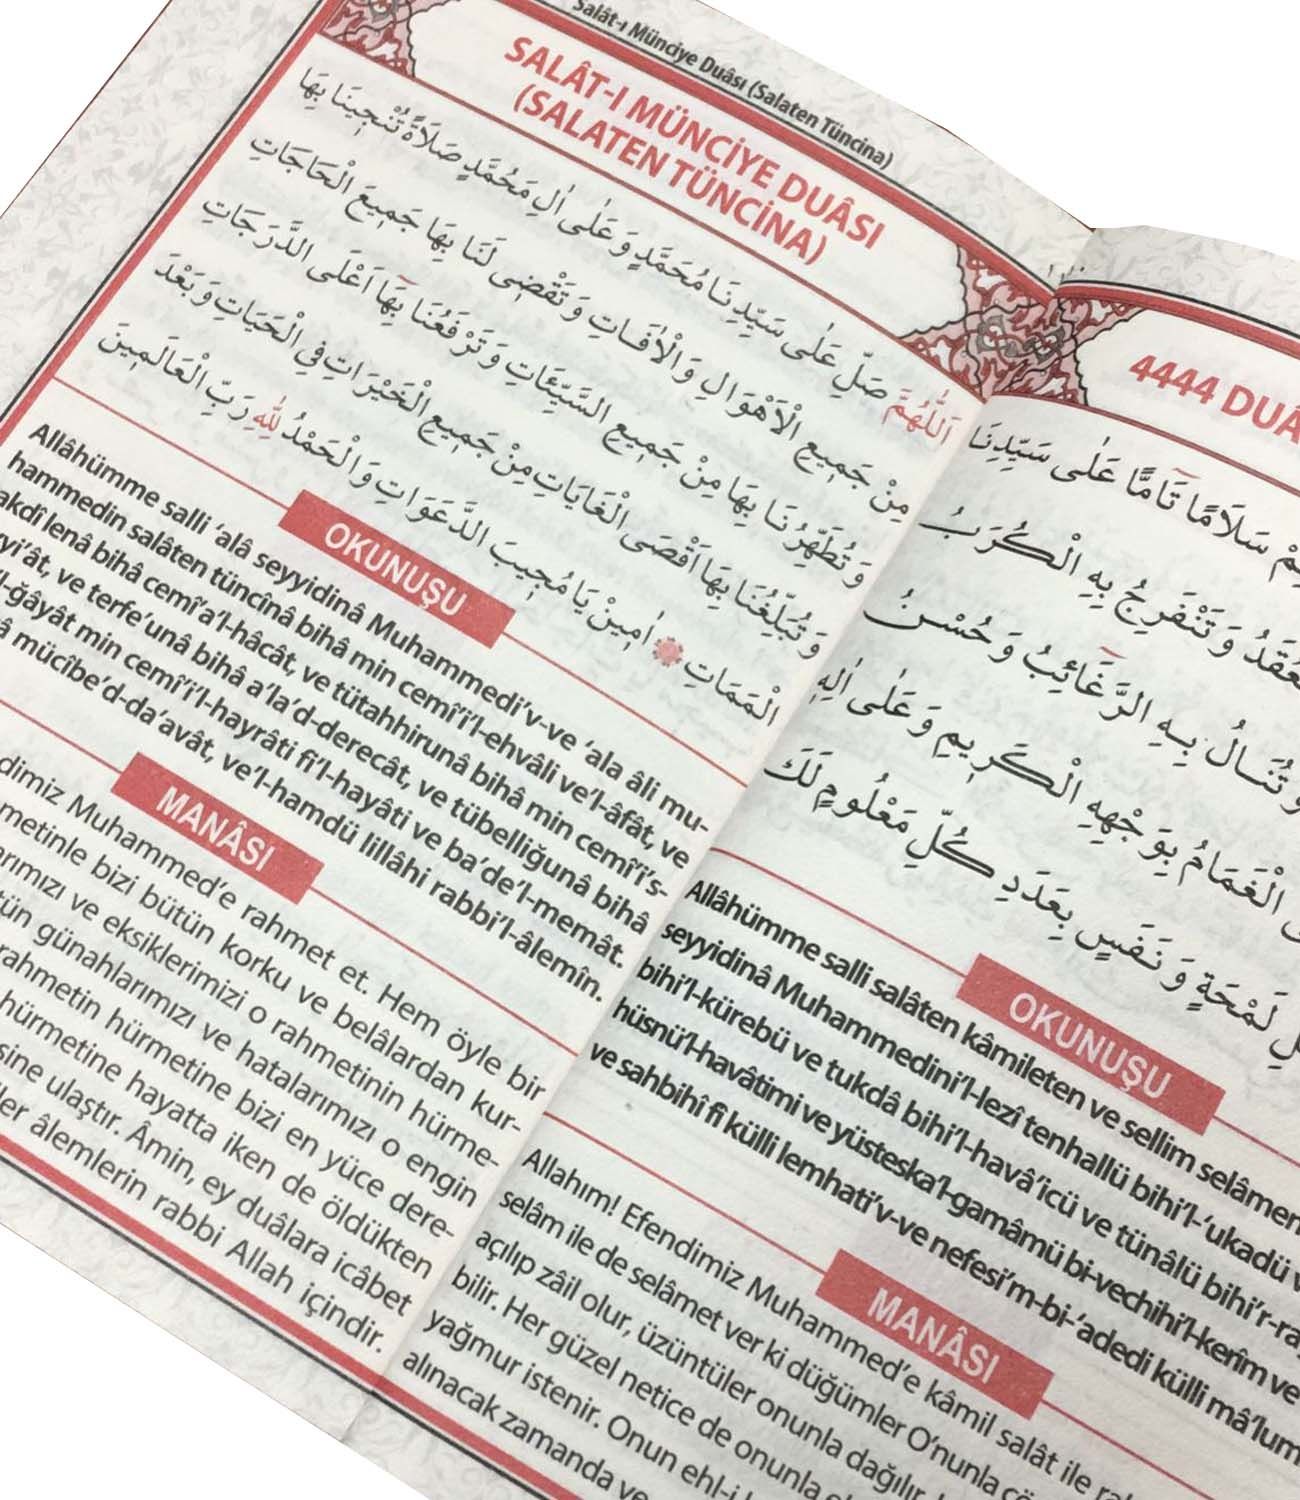 Salât-ı Münciye Duâsı (Salaten Tüncina)
SALÂT-I MÜNCİYE DUÂSI
(SALATEN TÜNCİNA)
اَللّٰهُمَّ صَلِّ عَلٰى سَيِّدِنَا مُحَمَّدٍ وَعَلٰى اٰلِ مُحَمَّدٍ صَلَاةً تُنْجِينَا بِهَا
مِنْ جَمِيعِ الْاَهْوَالِ وَالْاٰفَاتِ وَتَقْضِى لَنَا بِهَا جَمِيعَ الْحَاجَاتِ
وَتُطَهِّرُنَا بِهَا مِنْ جَمِيعِ السَّيِّئَاتِ وَتَرْفَعُنَا بِهَا اَعْلَى الدَّرَجَاتِ
وَتُبَلِّغُنَا بِهَا اَقْصَى الْغَايَاتِ مِنْ جَمِيعِ الْخَيْرَاتِ فِى الْحَيَاتِ وَبَعْدَ
الْمَمَاتِ اٰمِينْ يَا مُجِيبَ الدَّعَوَاتِ وَالْحَمْدُ لِلّٰهِ رَبِّ الْعَالَمِينَ
OKUNUŞU
Allâhümme salli ‘alâ seyyidinâ Muhammedi’v-ve ‘ala âli mu-
hammedin salâten tüncînâ bihâ min cemî’i’l-ehvâli ve’l-âfât, ve
lenâ bihâ cemî’a’l-hâcât, ve tütahhirunâ bihâ min cemî’i’s-
ve terfe’unâ bihâ a’la’d-derecât, ve tübelliğunâ bihâ
min cemî’i’l-hayrâti fi’l-hayâti ve ba’de’l-memât.
mücîbe’d-da’avât, ve’l-hamdü lillâhi rabbi’l-âlemîn.
MANÂSI
Muhammed’e rahmet et. Hem öyle bir
bizi bütün korku ve belâlardan kur-
ve eksiklerimizi o rahmetinin hürme-
günahlarımızı ve hatalarımızı o engin
rahmetin hürmetine bizi en yüce dere-
hürmetine hayatta iken de öldükten
ulaştır. Âmin, ey duâlara icâbet
âlemlerin rabbi Allah içindir.
4444
سَلَامًا تَامًّا عَلٰى سَيِّدِنَا
وَتَنْفَرِجُ بِهِ الْكُرَبُ
وَتُنَالُ بِهِ الرَّغَائِبُ وَحُسْنُ
الْغَمَامُ بِوَجْهِهِ الْكَرِيمِ وَعَلٰى اٰلِهِ
لَمْحَةٍ وَنَفَسٍ بِعَدَدِ كُلِّ مَعْلُومٍ لَكَ
OKUNUŞU
Allâhümme salli salâten kâmileten ve sellim
seyyidinâ Muhammedini’l-lezî tenhallü bihi’l-‘ukadü
bihi’l-kürebü ve tukdâ bihi’l-havâ’icü ve tünâlü
hüsnü’l-havâtimi ve yüsteska’l-gamâmü bi-vechihi’l-kerîm ve
ve sahbihî fî külli lemhati’v-ve nefesi’m-bi-‘adedi külli
MANÂSI
Allahım! Efendimiz Muhammed’e kâmil salât ile
selâm ile de selâmet ver ki düğümler O’nunla
açılıp zâil olur, üzüntüler onunla dağılır.
bilir. Her güzel netice de onunla
yağmur istenir. Onun ehl-i
alınacak zamanda ve